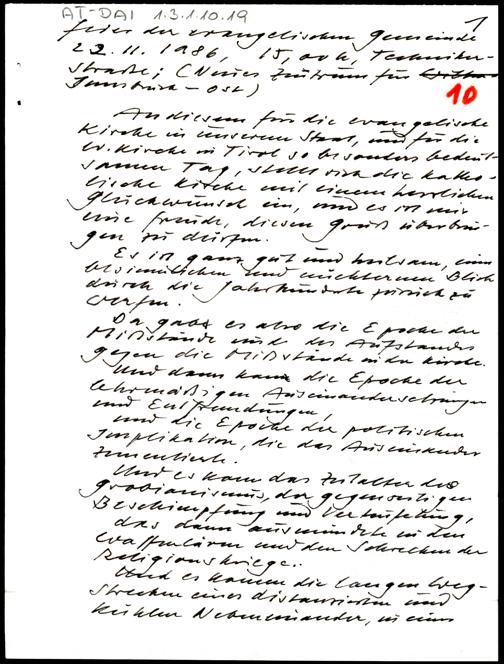 AT-DAI 1.3.1.10.19
1
feier der evangelischen Gemeinde
22.11.1986, 15,00h, Techniker-
straße; (Neues Zentrum für
Innsbruck-Ost)
10
An diesem für die evangelische
Kirche in unserem Staat, und für die
ev. Kirche in Tirol so besonders bedeut-
samen Tag, stellt sich die katho-
lische Kirche mit einem herzlichen
Glückwunsch ein, und es ist mir
eine Freude, diesen Gruß überbrin-
gen zu dürfen.
Es ist ganz gut und heilsam, einen
besinnlichen und nüchternen Blick
durch die Jahrhunderte zurück zu
werfen.
Da gab es also die Epoche der
Mißstände und des Aufstandes
gegen die Mißstände in der Kirche.
Und dann kam die Epoche der
lehrmäßigen Auseinandersetzungen
und Entfremdungen,
und die Epoche der politischen
Implikation, die das Auseinander
zementierte.
Und es kam das Zeitalter des
Grobianismus, der gegenseitigen
Beschimpfung und Verteufelung,
das dann ausmündete in den
Waffenlärm und den Schrecken der
Religionskriege.
Und es kamen die langen Weg-
strecken eines distanzierten und
kühlen Nebeneinander, in eine